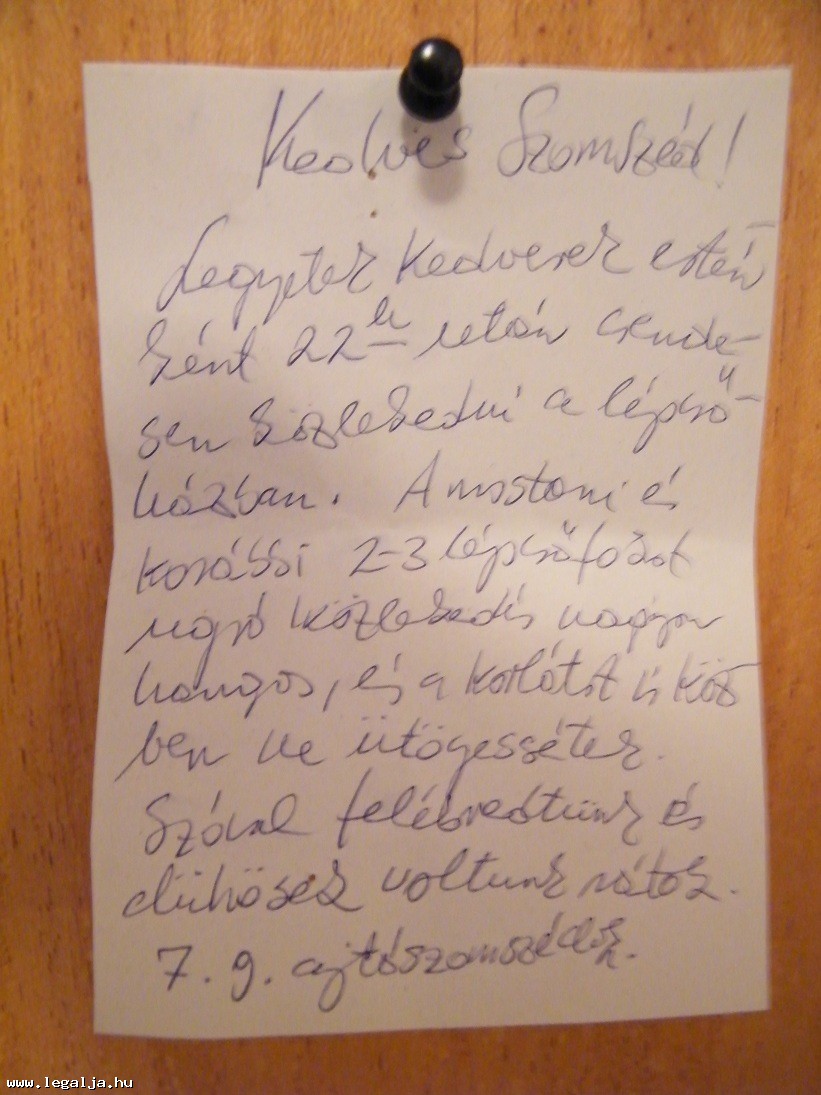 Kedves Szomszéd!
Legyetek kedvesek estén
ként 22 h után csende-
sen közlekedni a lépcső-
házban. A mostani és
korábbi 2-3 lépcsőfokot
ugró közlekedés nagyon
hangos, és a korlátot is köz
ben ne ütögessétek.
Szóval felébredtünk és
dühösek voltunk rátok.
7. 9. ajtószomszédok.
www.legalja.hu